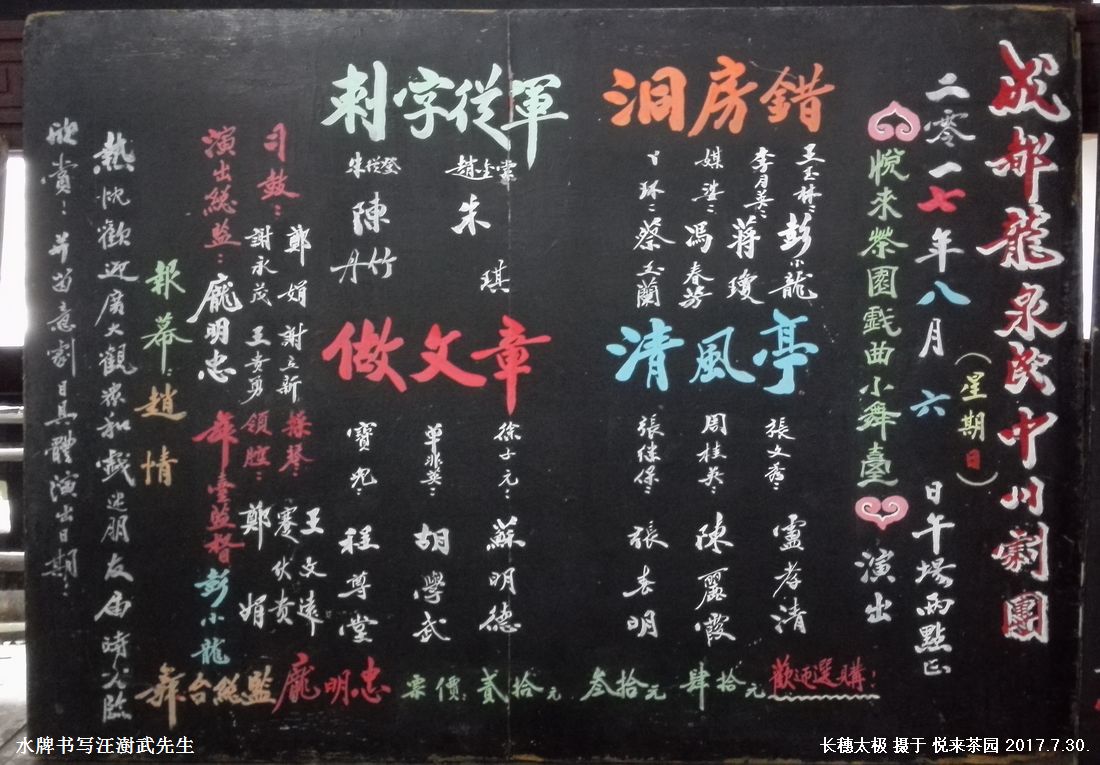 成都龍泉民中川劇團
二零一七年八月六日午場兩點正
（星期日）
悅來茶園戲曲小舞臺
演出
洞房錯
王玉林：彭小龍
李月英：蔣瓊
媒婆：馮春芳
丫環：蔡玉蘭
清風亭
張文秀：盧孝清
周桂英：陳麗霞
張继保：張春明
刺字從軍
趙金棠
朱琪
朱從登
陳丹竹
做文章
徐子元：蘇明德
單非英：胡學武
寶兒：程尊堂
司鼓：鄭娟 謝立新
謝永茂 王貴勇
操琴：王文遠
蹇伙貴
領腔：鄭娟
演出總監：龐明忠
舞臺監督 彭小龍
報幕：趙情
熱忱歡迎廣大觀眾和戲迷朋友届時光臨
欣賞：并留意劇目具體演出日期：
舞台總監龐明忠 票價：貳拾元 叁拾元 肆拾元 歡迎選購！
水牌书写汪澍武先生
长穗太极 摄于 悦来茶园 2017.7.30.